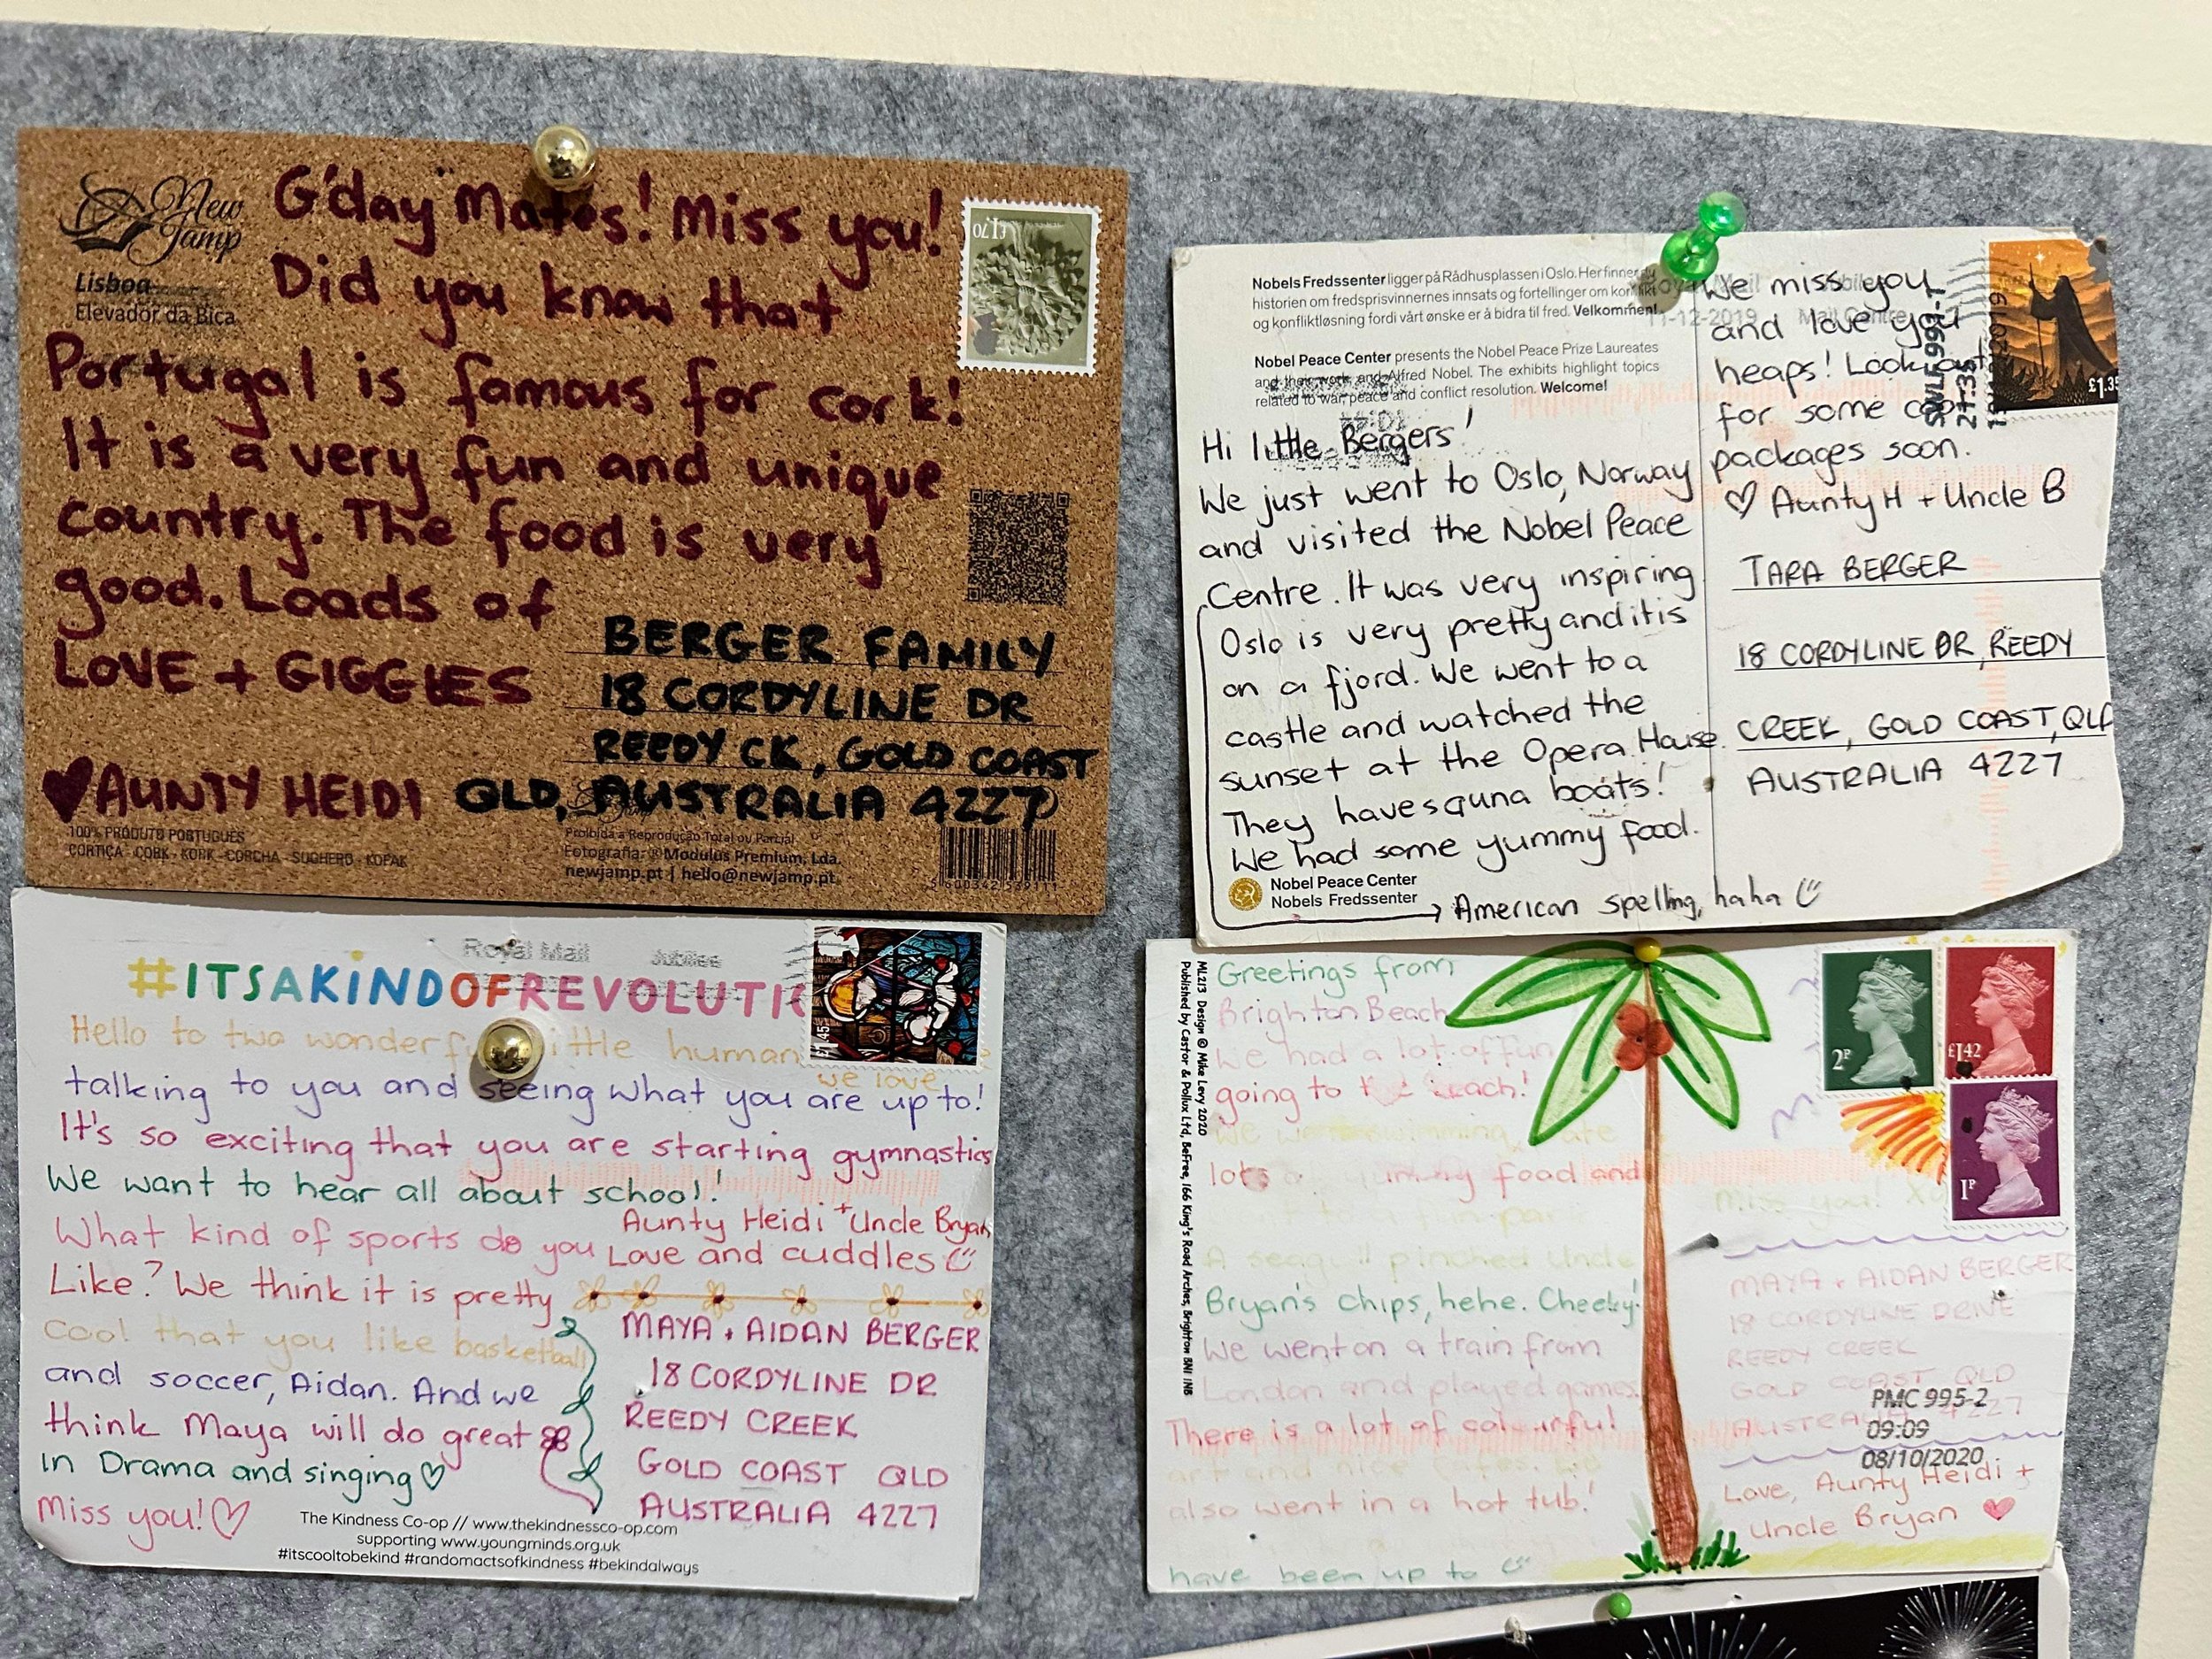 New
Jamp
Lisboa
Elevador da Bica
G'day Mates! Miss you!
Did you know that
Portugal is famous for cork!
It is a very fun and unique
country. The food is very
good. Loads of
LOVE + GIGGLES
♥AUNTY HEIDI
£1.70
BERGER FAMILY
18 CORDYLINE DR
REEDY CK, GOLD COAST
QLD, AUSTRALIA 4227
100% PRODUTO PORTUGUÊS
CORTIÇA - CORK - KORK - CORCHA - SUGHERO - KOPAK
Proibida a Reprodução Total ou Parcial
Fotografia: ©Modulus Premium, Lda.
newjamp.pt | hello@newjamp.pt
Nobels Fredssenter ligger på Rådhusplassen i Oslo. Her finner du
historien om fredsprisvinnernes innsats og fortellinger om konflikt
og konfliktløsning fordi vårt ønske er å bidra til fred. Velkommen!
Nobel Peace Center presents the Nobel Peace Prize Laureates
and their work and Alfred Nobel. The exhibits highlight topics
related to war, peace and conflict resolution. Welcome!
Hi little Bergers!
We just went to Oslo, Norway
and visited the Nobel Peace
Centre. It was very inspiring
Oslo is very pretty and it is
on a fjord. We went to a
castle and watched the
sunset at the Opera House.
They have sauna boats!
We had some yummy food.
Nobel Peace Center
Nobels Fredssenter
→ American spelling, haha
We miss you
and love you
heaps! Look out
for some cool
packages soon.
♡ Aunty H + Uncle B
11-12-2019
Mail Centre
£1.35
21:35
TARA BERGER
18 CORDYLINE DR, REEDY
CREEK, GOLD COAST, QLD
AUSTRALIA 4227
Royal Mail
Jubilee
#ITSAKINDOFREVOLUTI
£1.45
Hello to two wonderful little human
we love
talking to you and seeing what you are up to!
It's so exciting that you are starting gymnastics
We want to hear all about school!
What kind of sports do you
Like? We think it is pretty
cool that you like basketball
and soccer, Aidan. And we
think Maya will do great
in Drama and singing ♡
Miss you! ♡
Aunty Heidi + Uncle Bryan
Love and cuddles
MAYA + AIDAN BERGER
18 CORDYLINE DR
REEDY CREEK
GOLD COAST QLD
AUSTRALIA 4227
The Kindness Co-op // www.thekindnessco-op.com
supporting www.youngminds.org.uk
#itscooltobekind #randomactsofkindness #bekindalways
ML213 Design © Mike Levy 2020
Published by Castor & Pollux Ltd, BeFree, 166 King's Road Arches, Brighton BN1 1NB
Greetings from
Brighton Beach
We had a lot of fun
going to beach!
We swimming, ate
lots yummy food and
A seagull pinched Uncle
Bryan's chips, hehe. Cheeky!
We went on a train from
London and played games.
There is a lot of colourful
art and nice cafes. We
also went in a hot tub!
have been up to
2P
£1.42
1P
Miss you!
MAYA + AIDAN BERGER
18 CORDYLINE DRIVE
REEDY CREEK
GOLD COAST QLD
AUSTRALIA 4227
PMC 995-2
09:09
08/10/2020
Love, Aunty Heidi +
Uncle Bryan ♥